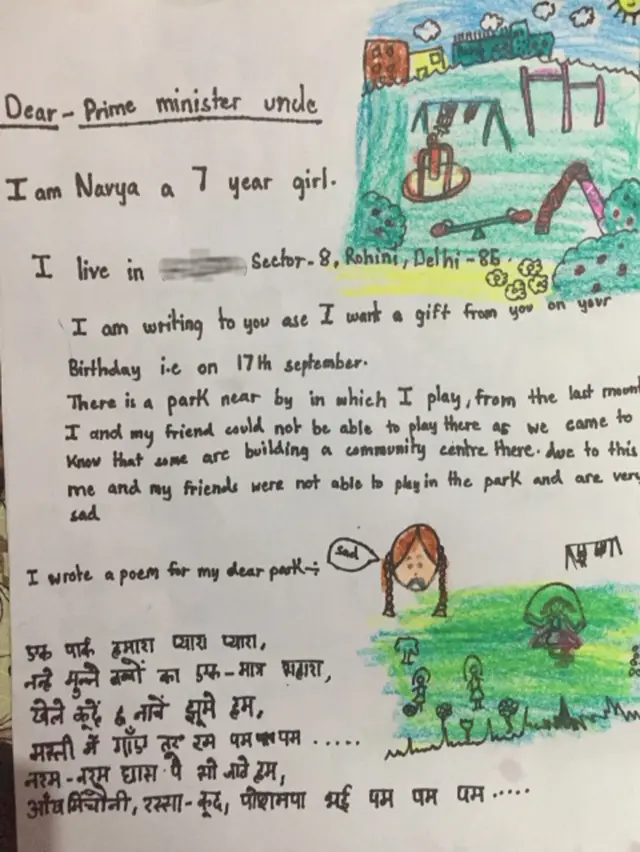 Dear - Prime minister uncle
I am Navya a 7 year girl.
I live in Sector-8, Rohini, Delhi-85.
I am writing to you ase I want a gift from you on your
Birthday i.e on 17th september.
There is a park near by in which I play, from the last
I and my friend could not be able to play there as we came to
Know that some are building a community centre there. due to this
me and my friends were not able to play in the park and are very
sad
sad
I wrote a poem for my dear park :-
एक पार्क हमारा प्यारा प्यारा,
नन्हे मुन्ने बच्चों का एक-मात्र सहारा,
खेले कूदें नाचें झूमे हम,
मस्ती में गाँए रम पम पम .....
नरम-नरम घास पे भी हम,
आँख मिचौनी, रस्सा-कूद, पोशमपा भई पम पम पम .....